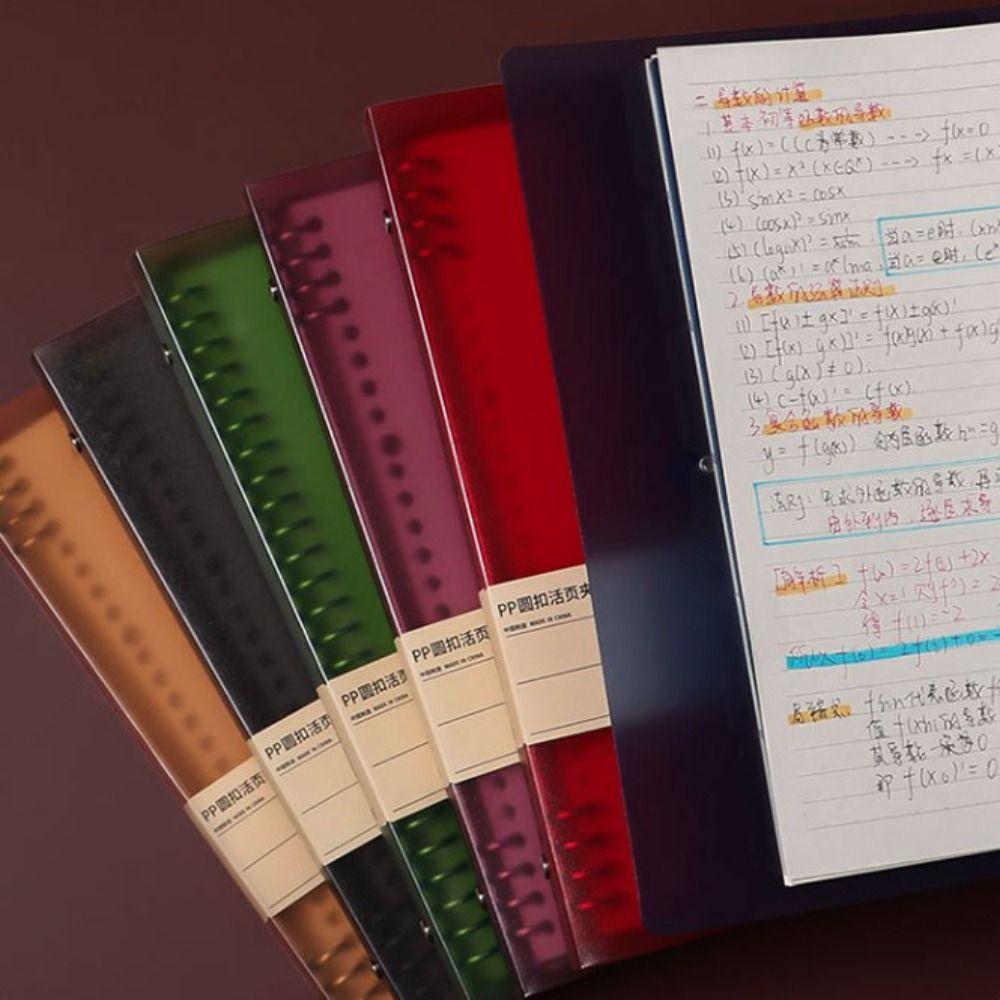 二 导数的计算
1. 基本初等函数的导数
(1) f(x)=C(C为常数) ---→ f(x=0
(2) f(x)=x²(x∈Q*) ---→ fx =(x
(3) sinx²=cosx
(4) (cosx)²=sinx
(5) (logax)²= 当a=e时, (xn
(6) (aˣ)'=aˣlna 当a=e时, (eˣ
2. 导数的运算法则
(1) [f(x)±gx]'=f(x)±g(x)'
(2) [f(x)·gx)]²=f(x)'g(x)+f(x)g
(3) (g(x)≠0);
(4) c-f(x)'= Cf(x).
3. 复合函数的导数
y= f(g(x)). 令内层函数 =g
法则: 先求外函数的导数, 再
由外到内, 逐层求导
f(x)=2f(1)+2x
令x=1 则f(1)=2
得 f(1)=-2
代表函数f
值 f(x)的导数
其导数一定为0
即 f(x₀)'=0
PP圆扣活页夹
中国制造 MADE IN CHINA
PP圆扣活页
中国制造 MADE IN CHINA
PP圆扣活页
中国制造 MADE IN CHINA
PP圆扣活页
中国制造 MADE IN CHINA
PP圆扣活页
中国制造 MADE IN CHINA